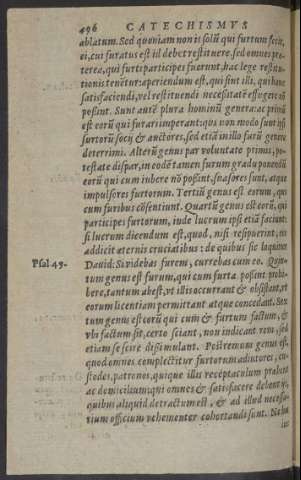 496 CATECHISMVS
ablatum. Sed quoniam non is solũ qui furtum fecit,
ei, cui furatus est id debet restituere, sed omnes præ-
terea, qui furti participes fuerunt, hac lege restitu-
tionis tenẽtur: aperiendum est, qui sint illi, quibus
satisfaciendi, vel restituendi necessitatẽ effugere nõ
possint. Sunt autẽ plura hominũ genera: ac primũ
est eorũ qui furari imperant: qui non modo sunt ipsi
furtorũ socij & auctores, sed etiã in illo furũ genere
deterrimi. Alterũ genus par voluntate primis, po-
testate dispar, in eodẽ tamen furum gradu ponendũ
eorũ qui cum iubere nõ possint, suasores sunt, atque
impulsores furtorum. Tertiũ genus est eorum, qui
cum furibus cõsentiunt. Quartũ genus est eorũ, qui
participes furtorum, inde lucrum ipsi etiã faciunt:
si lucrum dicendum est, quod, nisi resipuerint, eos
addicit æternis cruciatibus: de quibus sic loquitur
Psal 49. Dauid: Si videbas furem, currebas cum eo. Quin-
tum genus est furum, qui cum furta possint prohi-
bere, tantum abest, vt illis occurrant & obsistant, vt
eorum licentiam permittant atque concedant. Sex-
tum genus est eorũ qui cum & furtum factum, &
vbi factum sit, certo sciant, non indicant rem, sed
etiam se scire dissimulant. Postremum genus est,
quod omnes complectitur furtorum adiutores, cu-
stodes, patronos, quique illis receptaculum præbent
ac domicilium: qui omnes & satisfacere debent ijs,
quibus aliquid detractum est, & ad illud necessa-
rium officium vehementer cohortandi sunt.